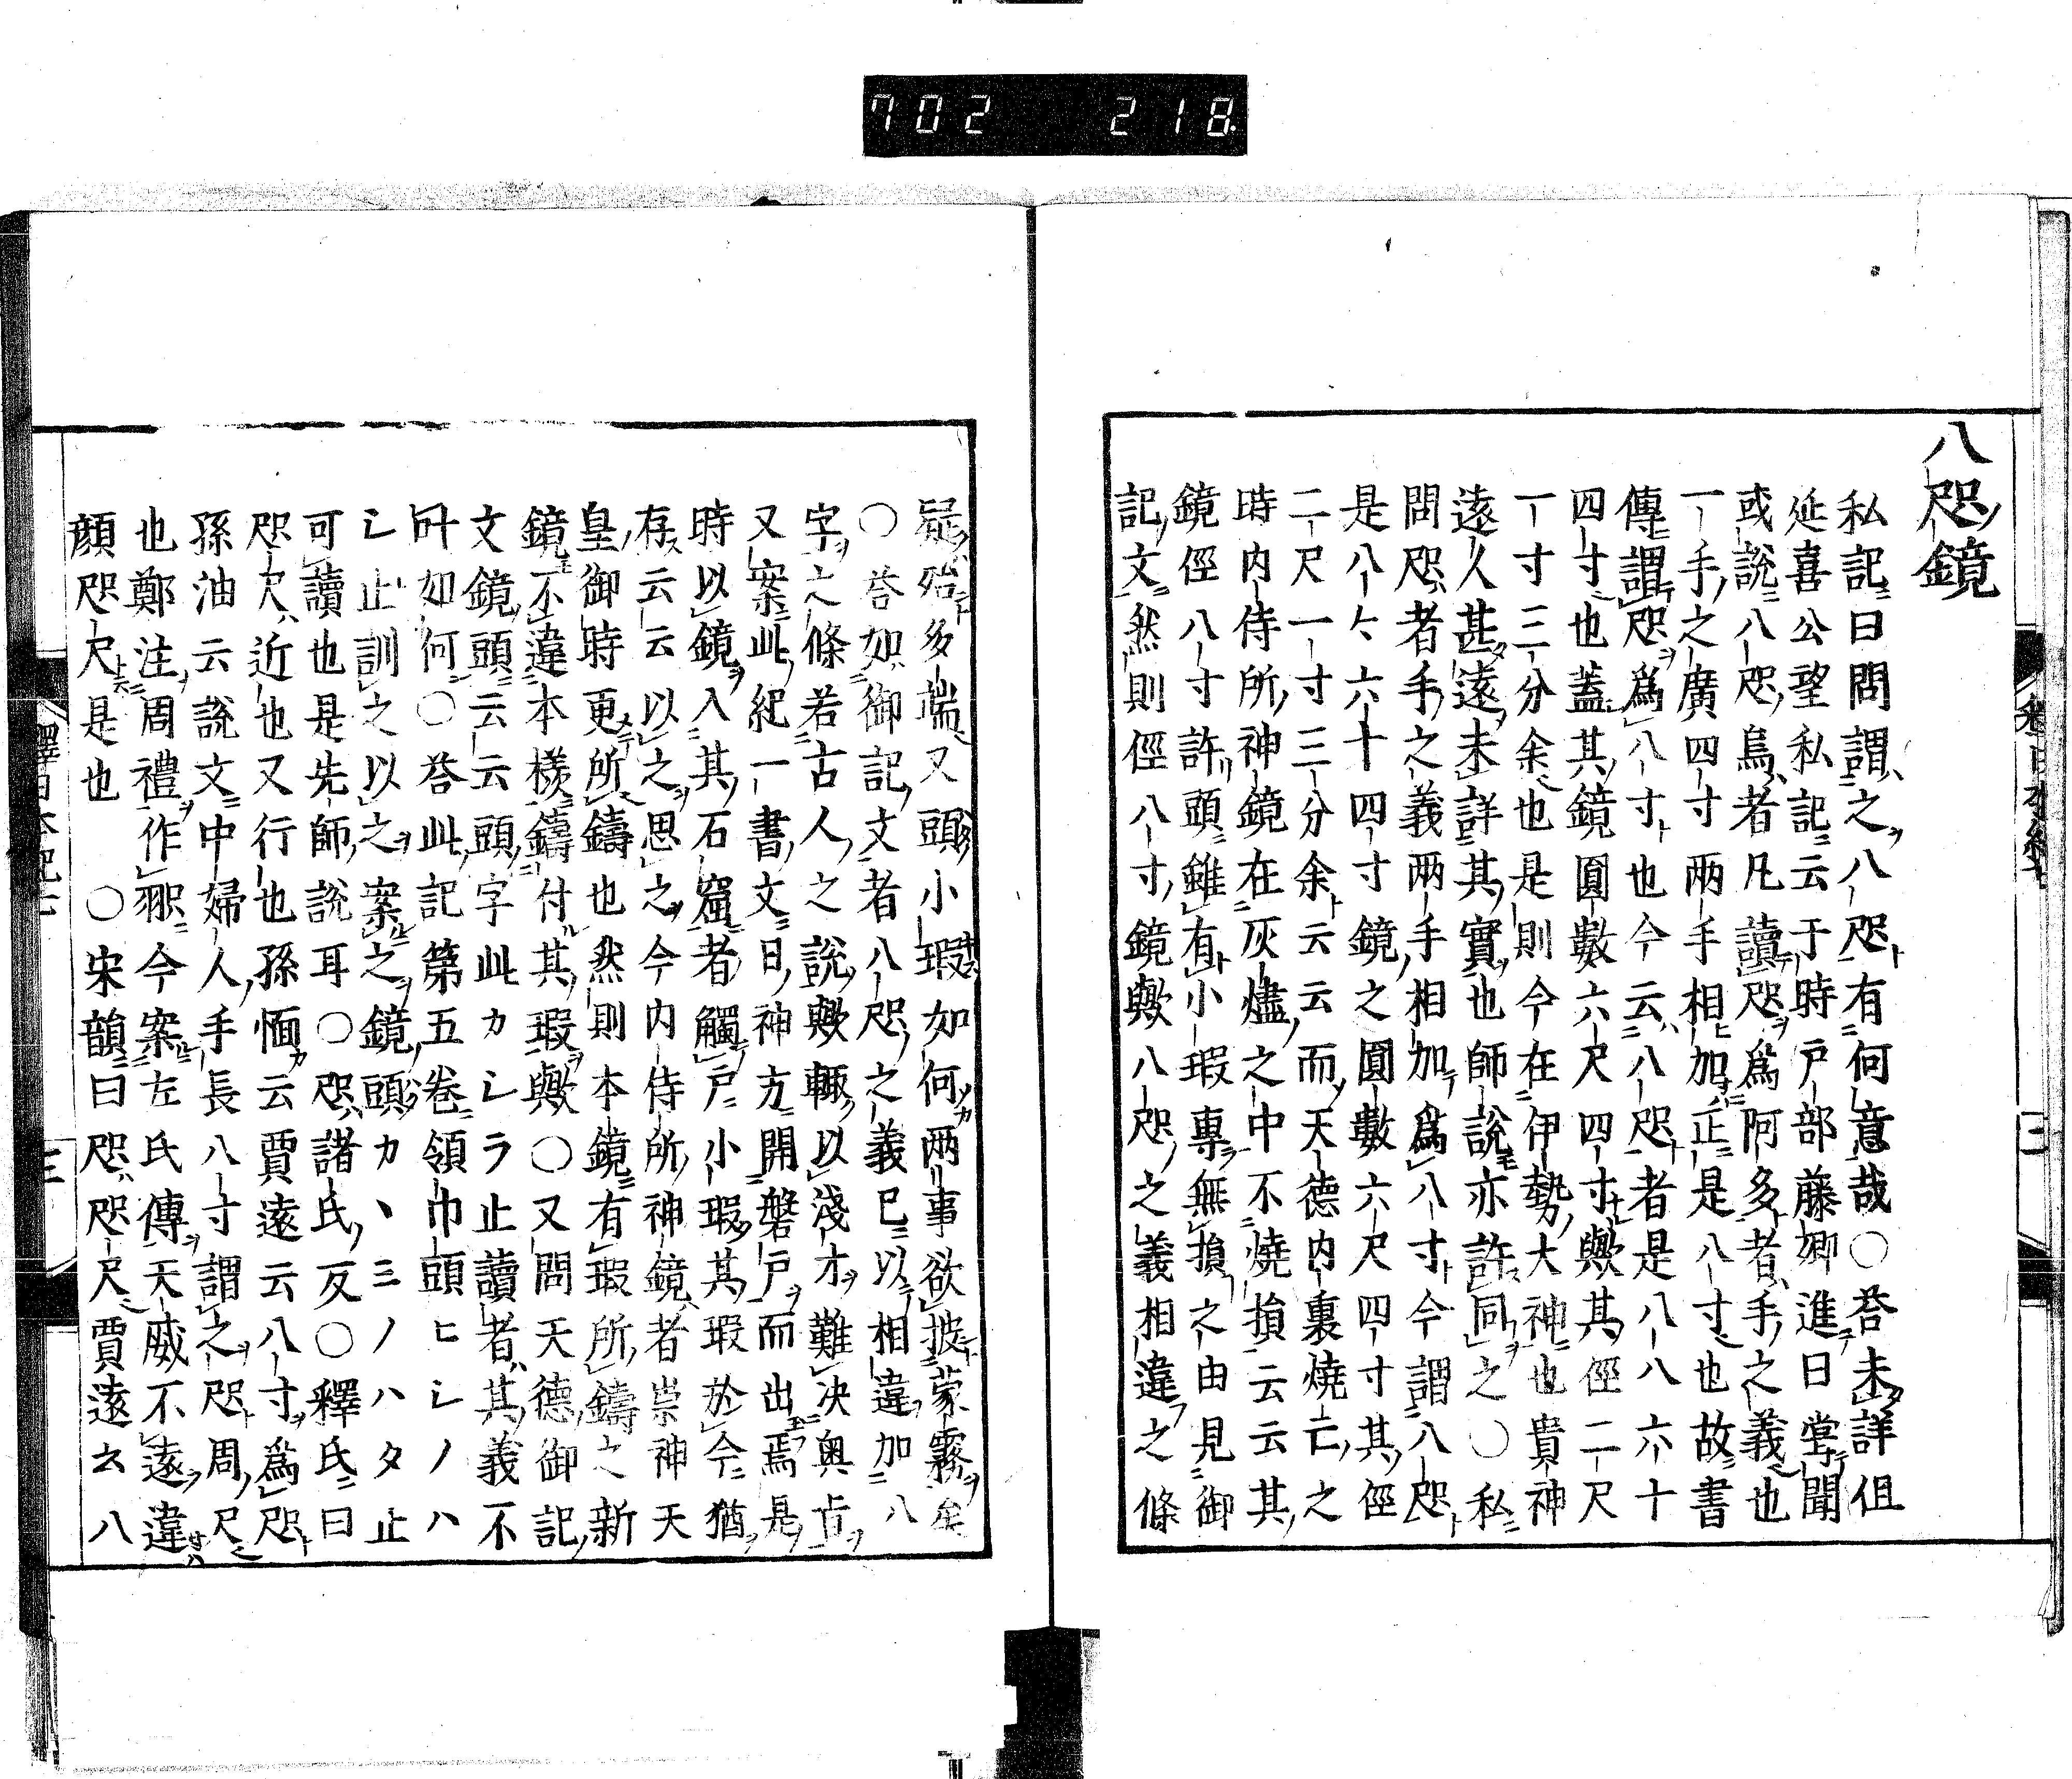 702 218
八咫鏡
私記曰問謂之八咫有何意哉〇荅未詳但
延喜公望私記云于時戸部藤卿進曰甞聞
或說八咫烏者凡讀咫爲阿多者手之義也
一手之廣四寸兩手相加正是八寸也故書
傳謂咫爲八寸也今云八咫者是八八六十
四寸也蓋其鏡圓數六尺四寸歟其俓二尺
一寸三分余也是則今在伊勢大神也貴神
遠人甚遠未詳其實也師說亦許同之〇私
問咫者手之義兩手相加爲八寸今謂八咫
是八〻六十四寸鏡之圓數六尺四寸其俓
二尺一寸三分余云云而天德内裏燒亡之
時内侍所神鏡在灰燼之中不燒損云云其
鏡俓八寸許頭雖有小瑕專無損之由見御
記文然則俓八寸鏡歟八咫之義相違之條
疑殆多端又頭小瑕如何兩事欲披蒙霧矣
〇荅如御記文者八咫之義已以相違加八
字之條若古人之說歟輙以淺才難决奥㫖
又案此紀一書文曰神方開磐戸而出焉是
時以鏡入其石窟者觸戸小瑕其瑕於今猶
存云云以之思之今内侍所神鏡者崇神天
皇御時更所鑄也然則本鏡有瑕所鑄之新
鏡不違本樣鑄付其瑕歟〇又問天德御記
文鏡頭云云頭字此カレラ止讀者其義不
叶如何〇荅此記第五卷領巾頭ヒレノハ
レ止訓之以之案之鏡頭カヽミノハタ止
可讀也是先師說耳〇咫諸氏反〇釋氏曰
咫尺近也又行也孫愐云賈逵云八寸爲咫
孫油云說文中婦人手長八寸謂之咫周尺
也鄭注周禮作䎶今案左氏傳天威不遠違
顔咫尺是也　〇宋韻曰咫咫尺賈逵云八
釋日本紀七
三